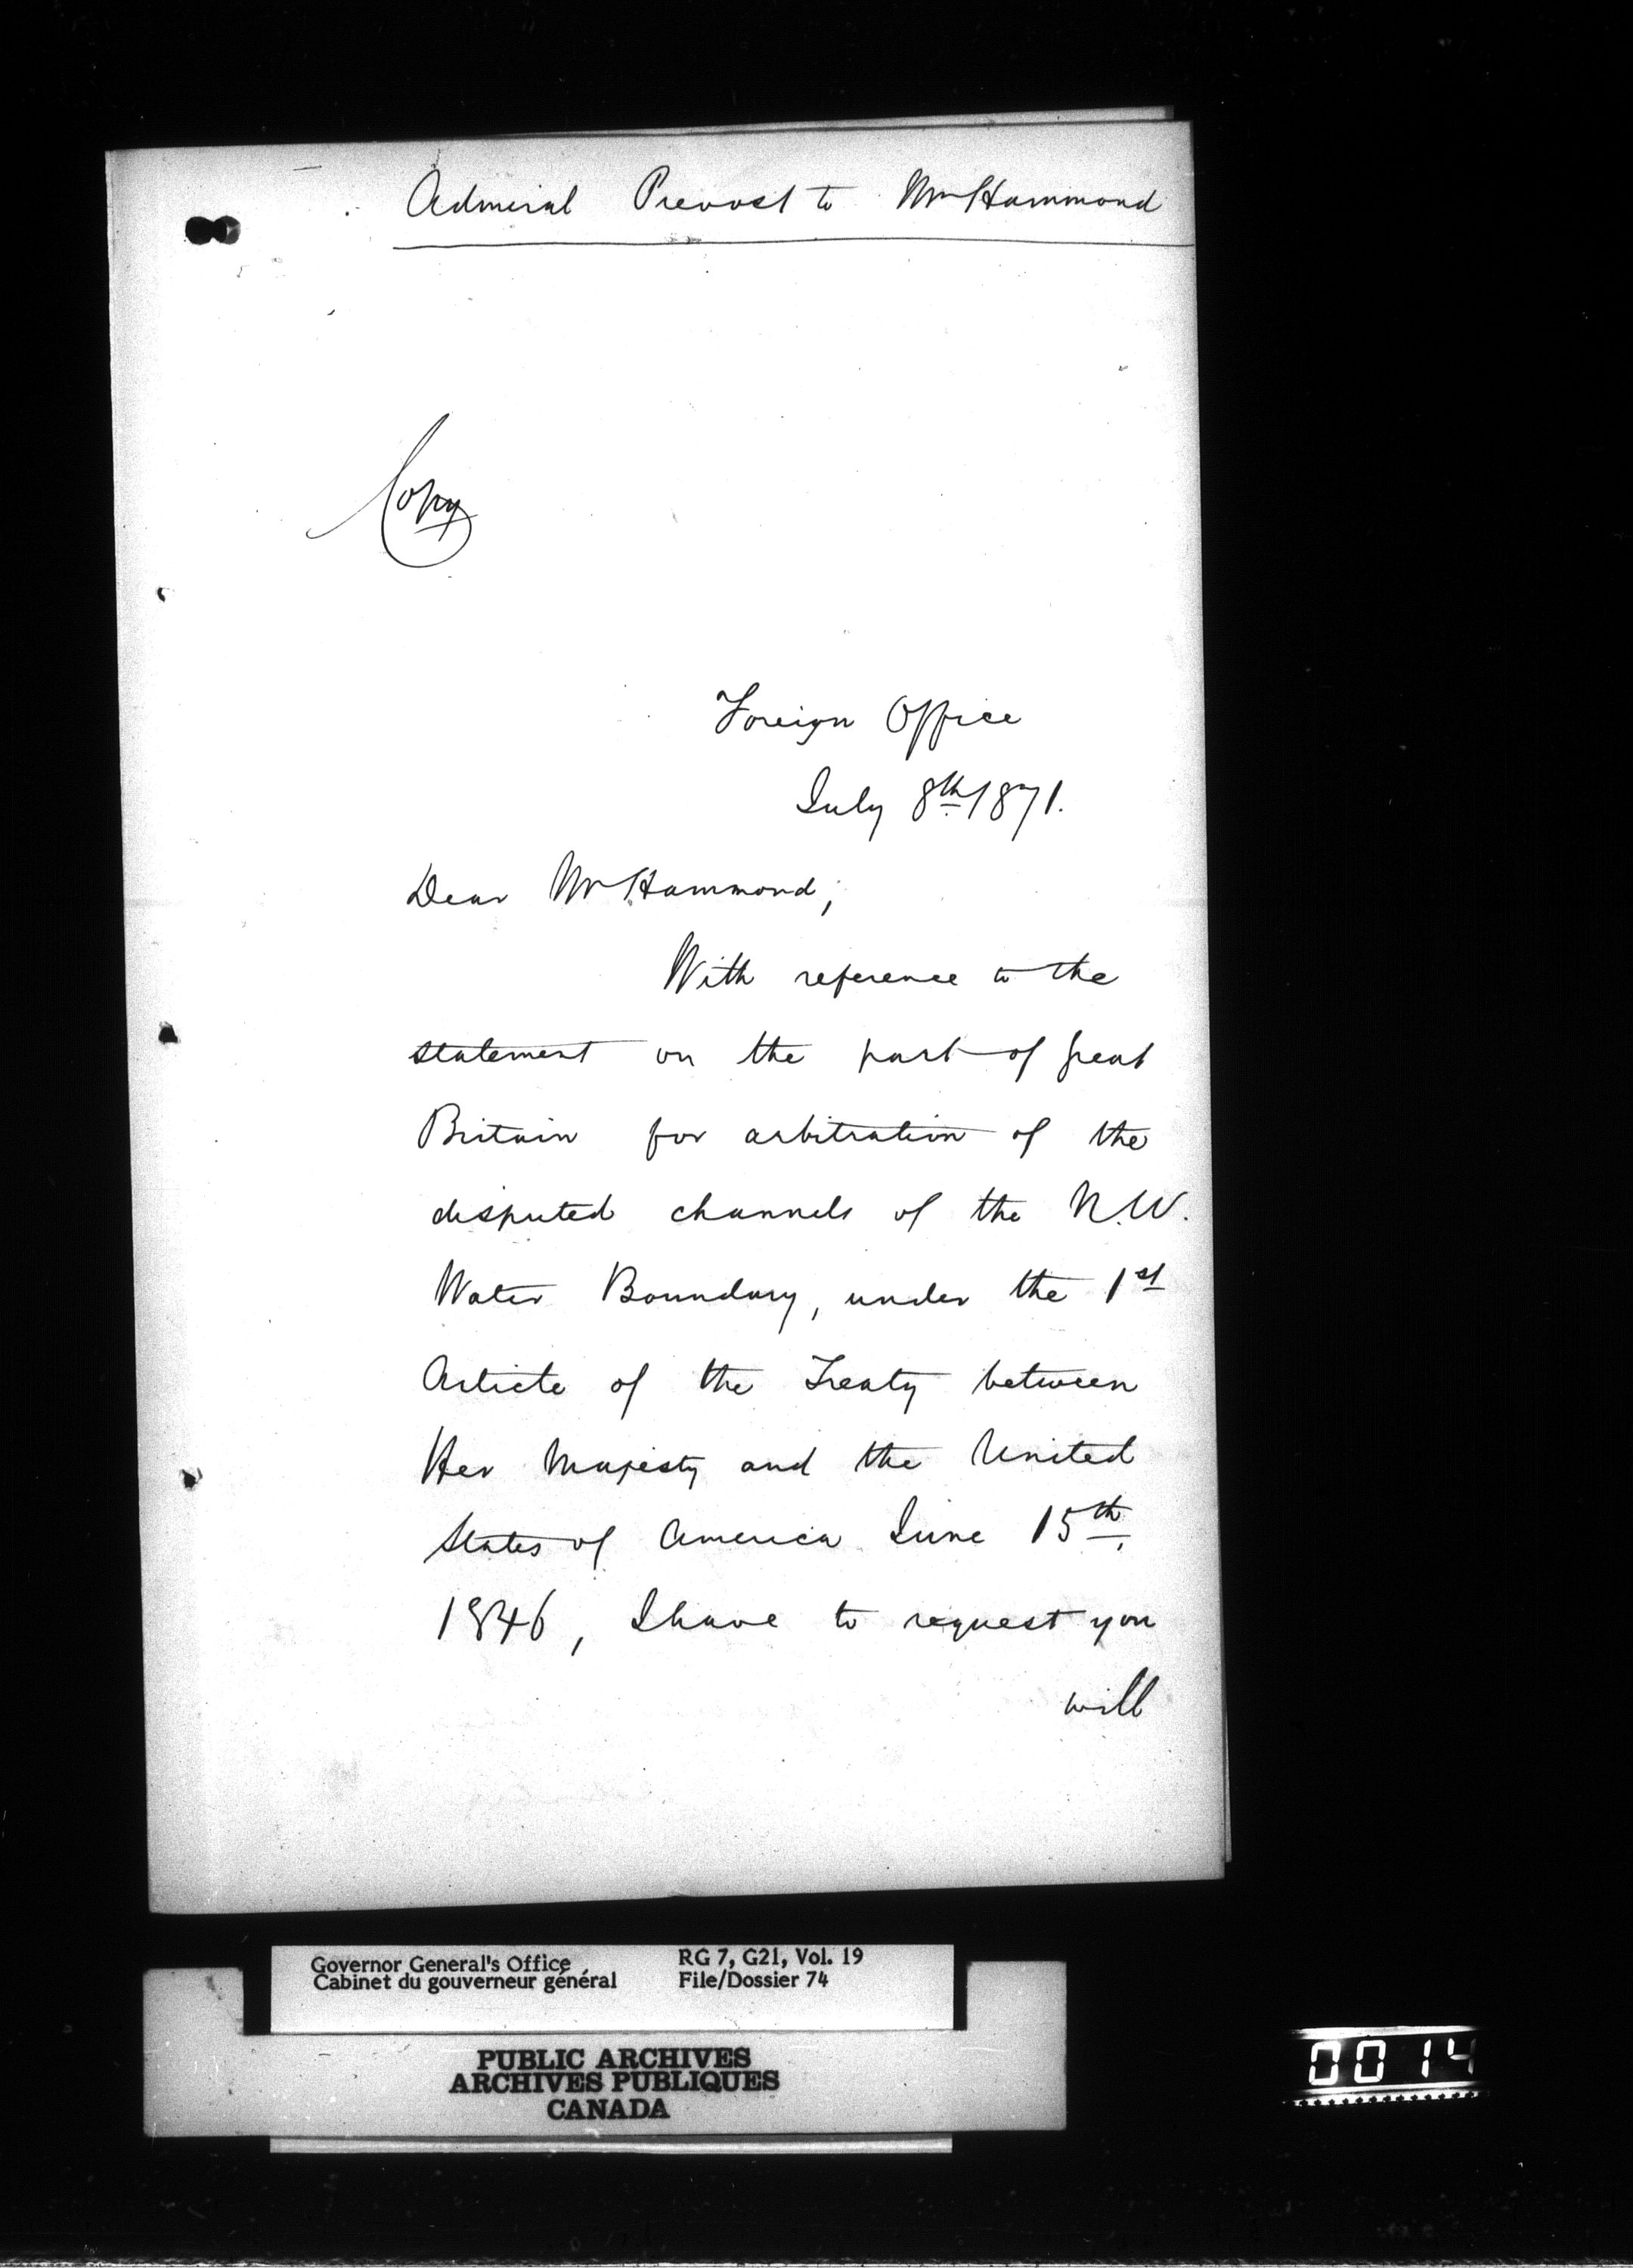 Admiral Prevost to Mr Hammond
Copy
Foreign Office
July 8th 1871.
Dear Mr Hammond,
With reference to the
statement on the part of Great
Britain for arbitration of the
disputed channels of the N.W.
Water Boundary, under the 1st
Article of the Treaty between
Her Majesty and the United
States of America June 15th,
1846, I have to request you
will
Governor General's Office RG 7, G21, Vol. 19
Cabinet du gouverneur général File/Dossier 74
PUBLIC ARCHIVES
ARCHIVES PUBLIQUES
CANADA
0014